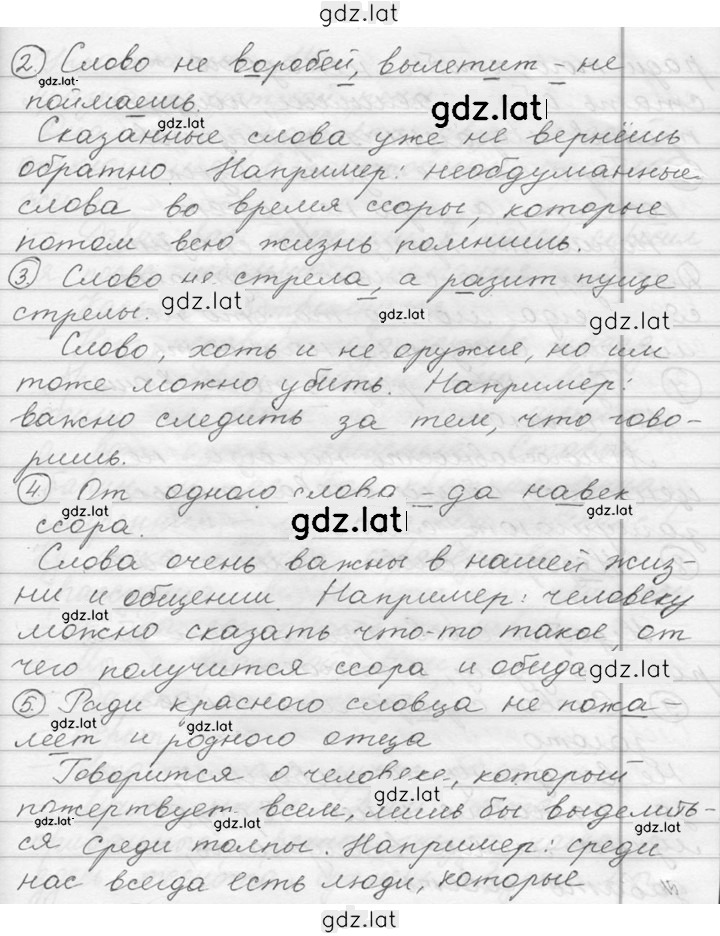 gdz.lat
2. Слово не воробей, вылетит - не
gdz.lat
поймаешь.
gdz.lat
gdz.lat
Сказанные слова уже не вернёшь
обратно. Например: необдуманные
слова во время ссоры, которые
потом всю жизнь помнишь.
3. Слово не стрела, а разит пуще
gdz.lat
стрелы.
gdz.lat
gdz.lat
Слово, хоть и не оружие, но им
тоже можно убить. Например:
важно следить за тем, что гово-
ришь.
4. От одного слова - да навек
gdz.lat
gdz.lat
ссора.
gdz.lat
Слова очень важны в нашей жиз-
ни и общении. Например: человеку
gdz.lat
можно сказать что-то такое, от
чего получится ссора и обида
gdz.lat
5. Ради красного словца не пожа-
gdz.lat
gdz.lat
леет и родного отца
Говорится о человеке, который
gdz.lat
пожертвует всем, лишь бы выделить-
gdz.lat
gdz.lat
ся среди толпы. Например: среди
нас всегда есть люди, которые
gdz.lat